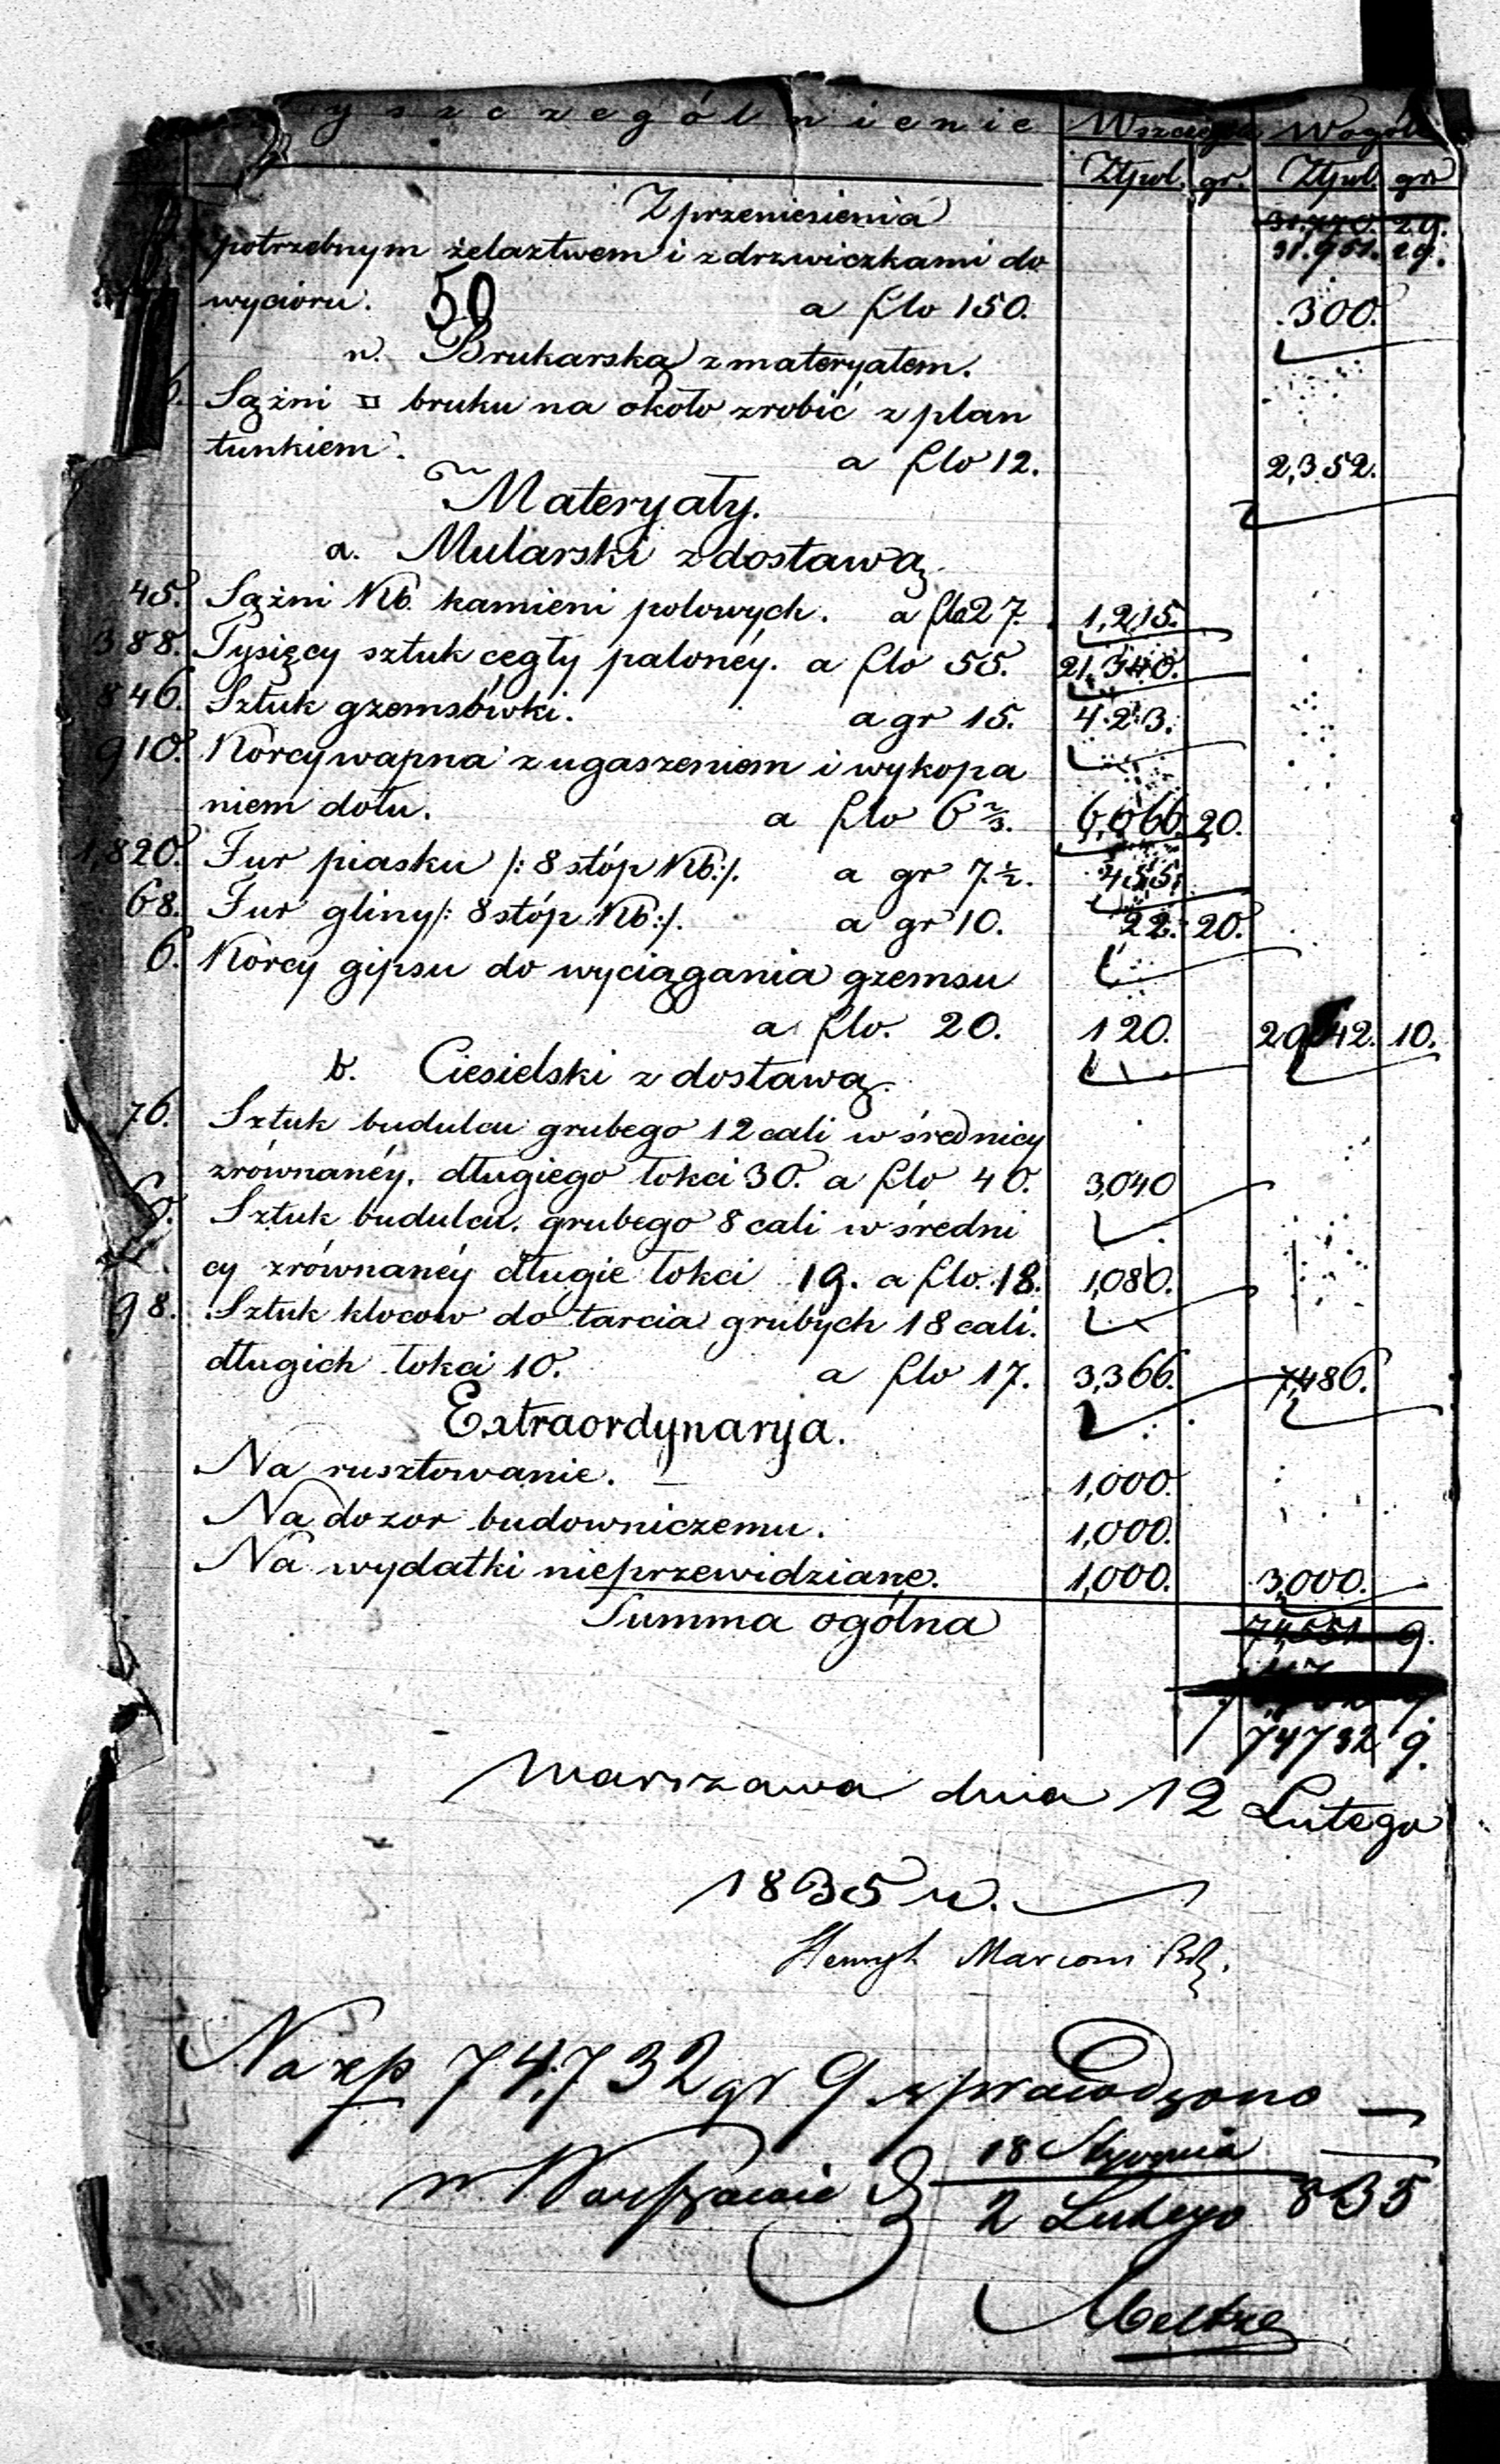 yszczególnienie Wszczegó Wogól
Ztpol. gr. Ztpol. gr
Z przeniesienia 31.770. 29.
potrzebnym żelaztwem i z drzwiczkami do 31.951. 29.
wycioru. 50 a flo 150. 300.
n. Brukarska z materyałem.
6. Sążni □ bruku na około zrobić z plan
tunkiem. a flo 12. 2,352.
Materyały.
a. Mularski z dostawą.
45. Sążni Kb. kamieni polowych. a flo 27. 1,215.
388. Tysięcy sztuk cegły palonéy. a flo 55. 21,340.
846. Sztuk gzemsówki. a gr 15. 423.
910. Korcy wapna z ugaszeniem i wykopa
niem dołu. a flo 6 2/3. 6,066. 20.
1,820. Fur piasku /: 8 stóp Kb :/. a gr 7. ½. 455.
68. Fur gliny /: 8 stóp Kb :/. a gr 10. 22. 20.
6. Korcy gipsu do wyciągania gzemsu
a flo. 20. 120. 29642. 10.
b. Ciesielski z dostawą.
76. Sztuk budulcu grubego 12 cali w średnicy
zrównanéy, długiego łokci 30. a flo 40. 3,040
60. Sztuk budulcu, grubego 8 cali w średni
cy zrównanéy długie łokci 19. a flo. 18. 1,080.
98. Sztuk klocow do tarcia grubych 18 cali.
długich łokci 10. a flo 17. 3,366. 7,486.
Extraordynarya.
Na rusztowanie. 1,000.
Na dozor budowniczemu. 1,000.
Na wydatki nieprzewidziane. 1,000. 3,000.
Summa ogólna 74,551 9.
74732 9.
Warszawa dnia 12 Lutego
1835 r.
Henryk Marconi Bd.
Na zp 74,732 gr 9 sprawdzono
w Warszawie d 18 Stycznia
2 Lutego 835